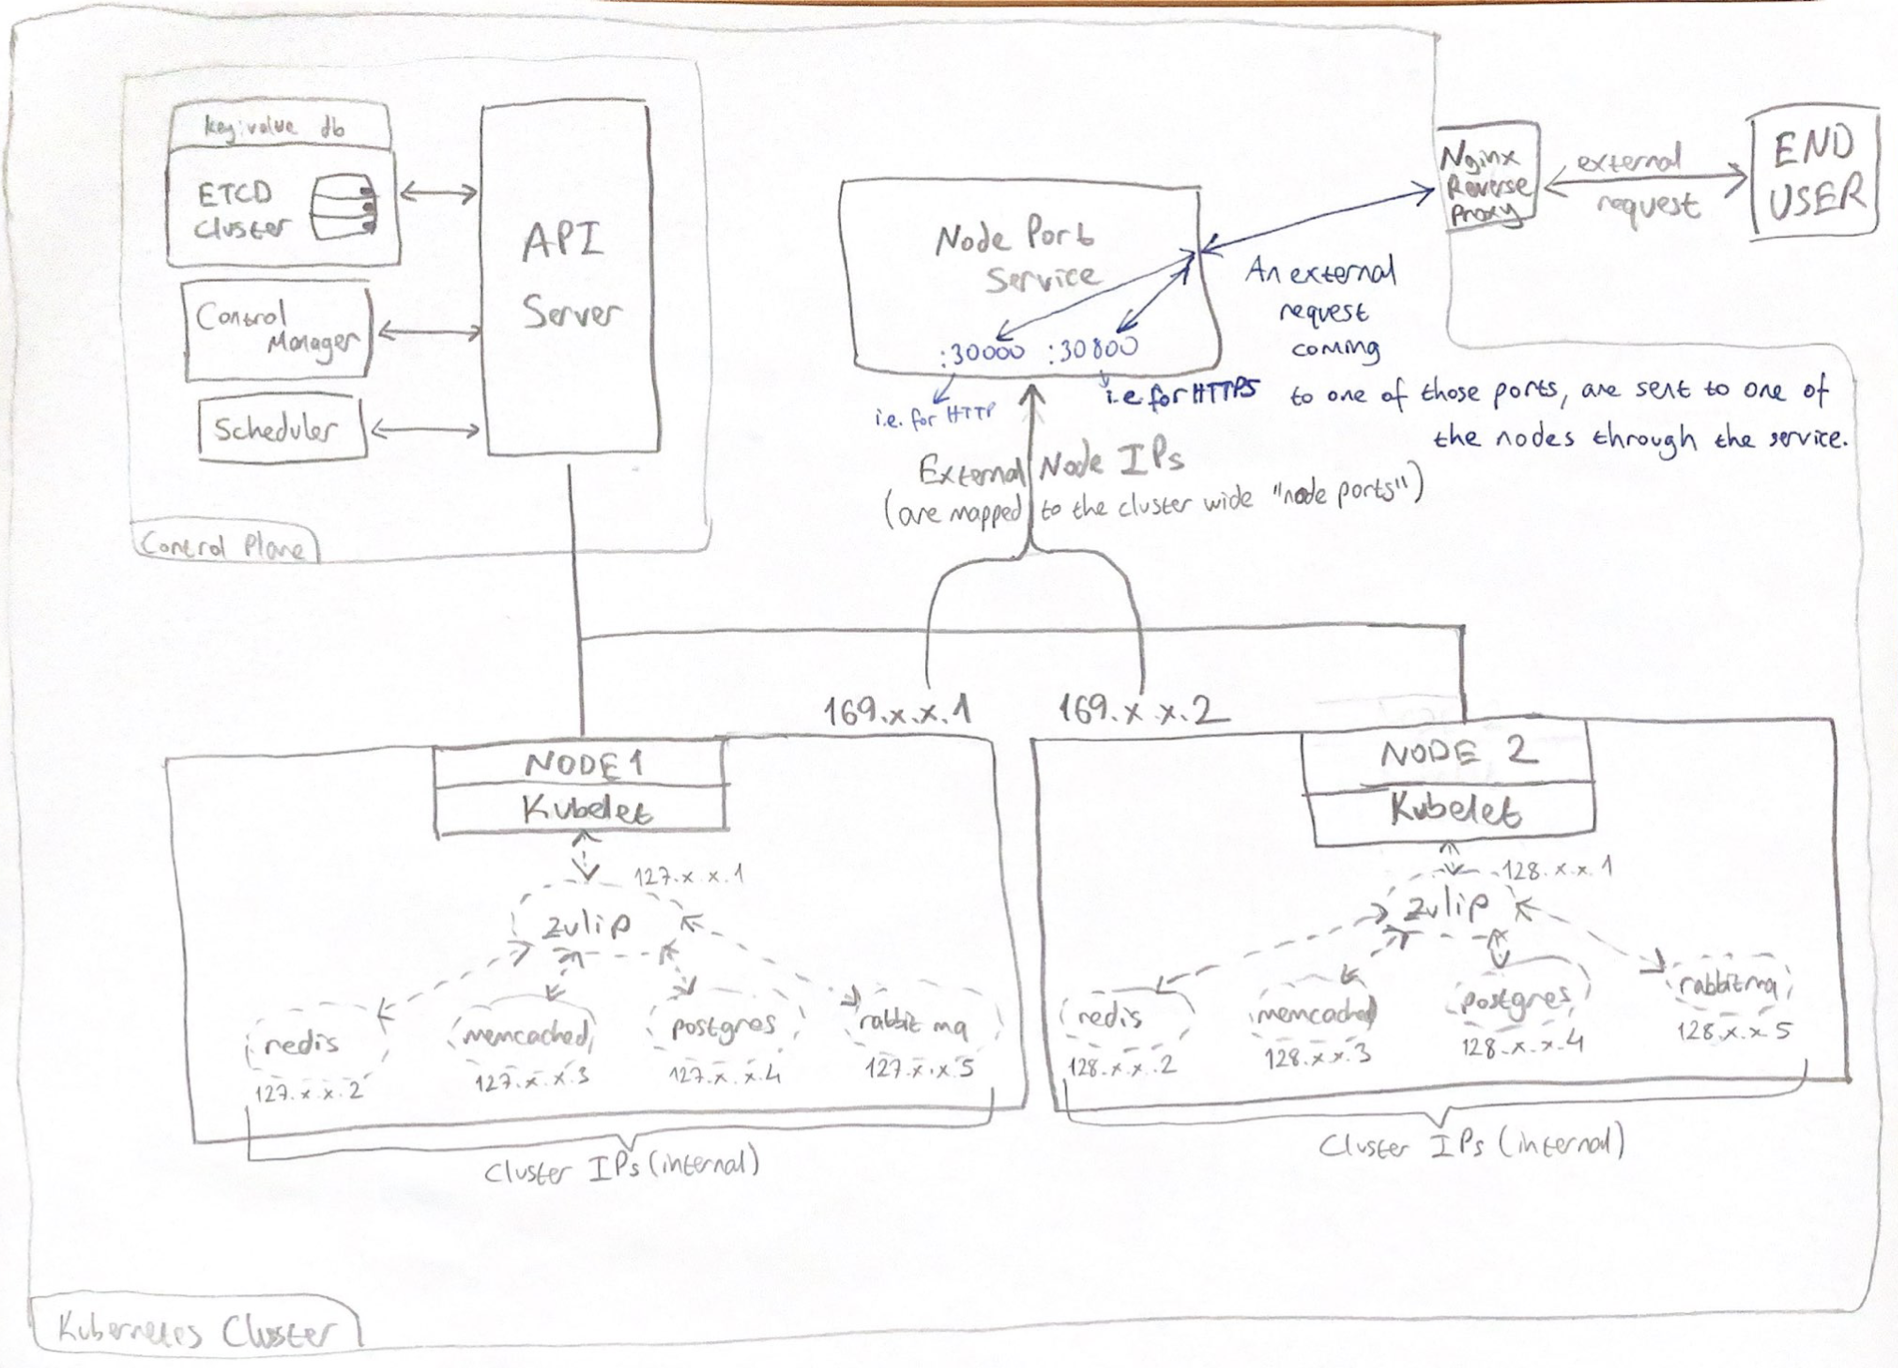 key:value db
ETCD
Cluster
Control
Manager
Scheduler
API
Server
Control Plane
Node Port
Service
:30000 :30800
i.e. for HTTP
i.e. for HTTPS
Nginx
Reverse
Proxy
external
request
END
USER
An external
request
coming
to one of those ports, are sent to one of
the nodes through the service.
External Node IPs
(are mapped to the cluster wide "node ports")
169.x.x.1
169.x x.2
NODE 1
Kubelet
127.x x.1
zulip
redis
127.x.x.2
memcached
127.x.x.3
postgres
127.x x.4
rabbit mq
127.x.x 5
Cluster IPs (internal)
NODE 2
Kubelet
128.x x.1
zulip
redis
128.x.x.2
memcached
128.x.x.3
postgres
128.x.x.4
rabbitmq
128.x.x 5
Cluster IPs (internal)
Kubernetes Cluster